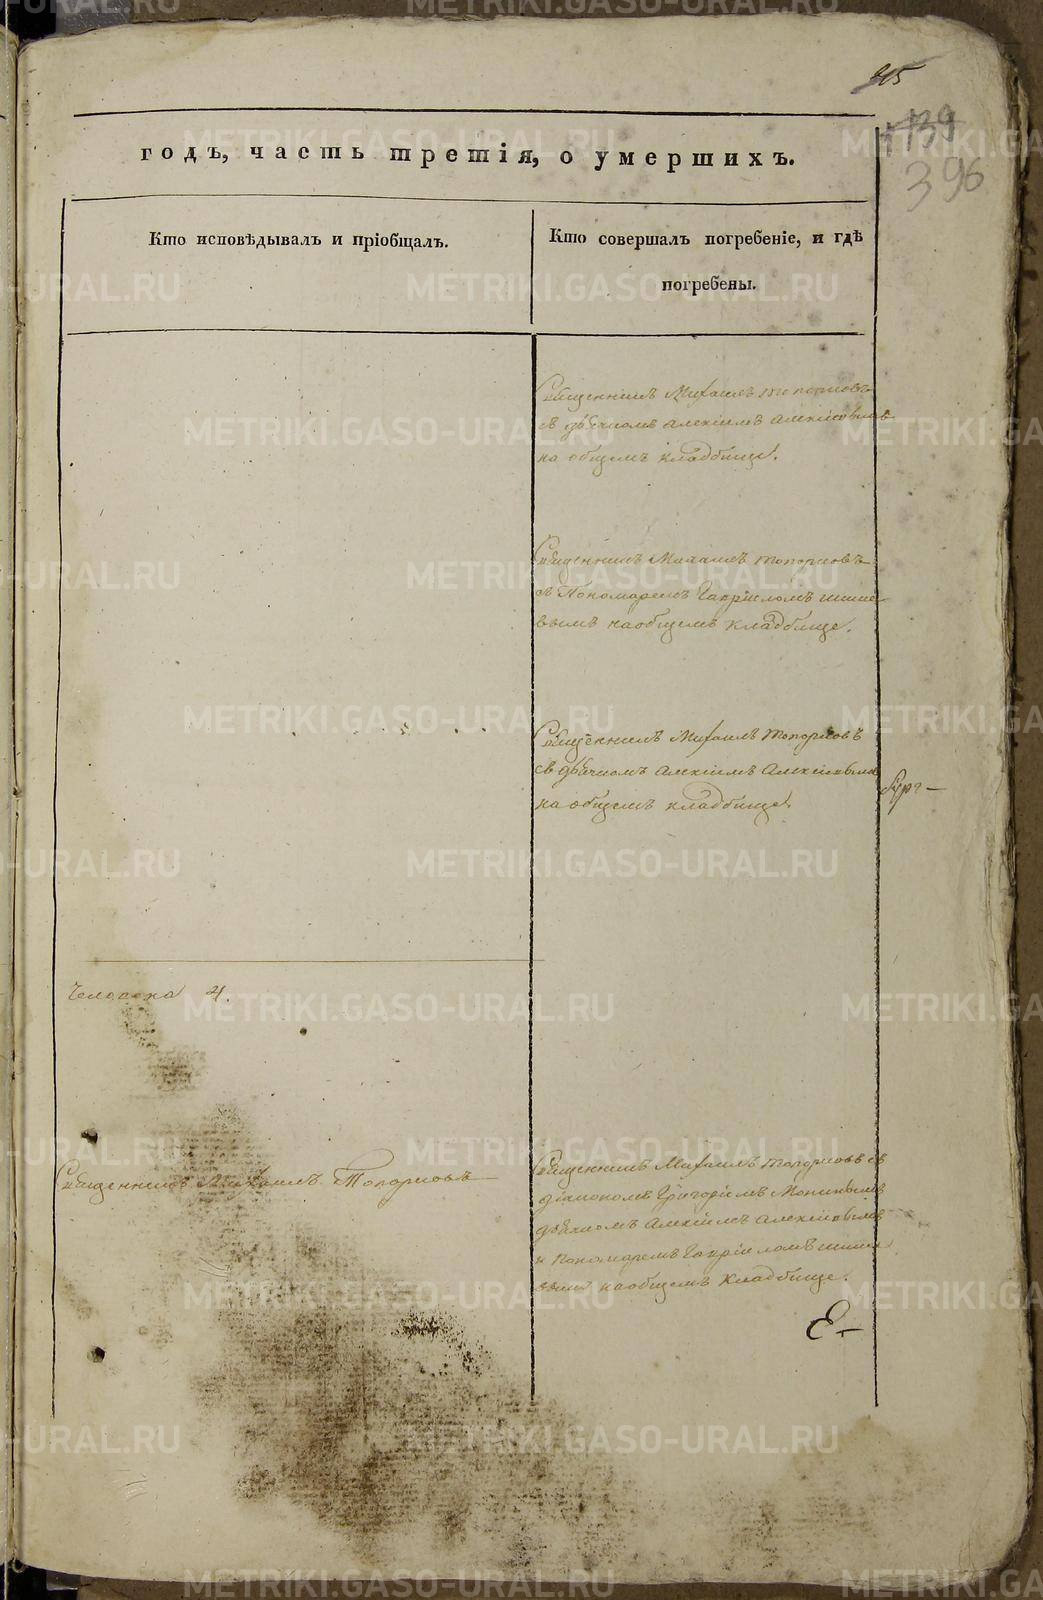 139
396
годъ, часть третія, о умершихъ.
Кто исповѣдывалъ и пріобщалъ.
Кто совершалъ погребеніе, и гдѣ
погребены.
Священникъ Михаилъ Топорковъ
съ дьячкомъ Алексіемъ Алексіевымъ
на общемъ кладбище.
Священникъ Михаилъ Топорковъ
съ Пономаремъ Гавріиломъ
вымъ на общемъ кладбище.
Священникъ Михаилъ Топорковъ
съ дьячкомъ Алексіемъ Алексіевымъ
на общемъ кладбище.
Человека 4.
Священникъ Михаилъ Топорковъ
Священникъ Михаилъ Топорковъ съ
діакономъ Григоріемъ
дьячкомъ Алексіемъ Алексіевымъ
и Пономаремъ Гавріиломъ
вымъ на общемъ кладбище.
METRIKI.GASO-URAL.RU